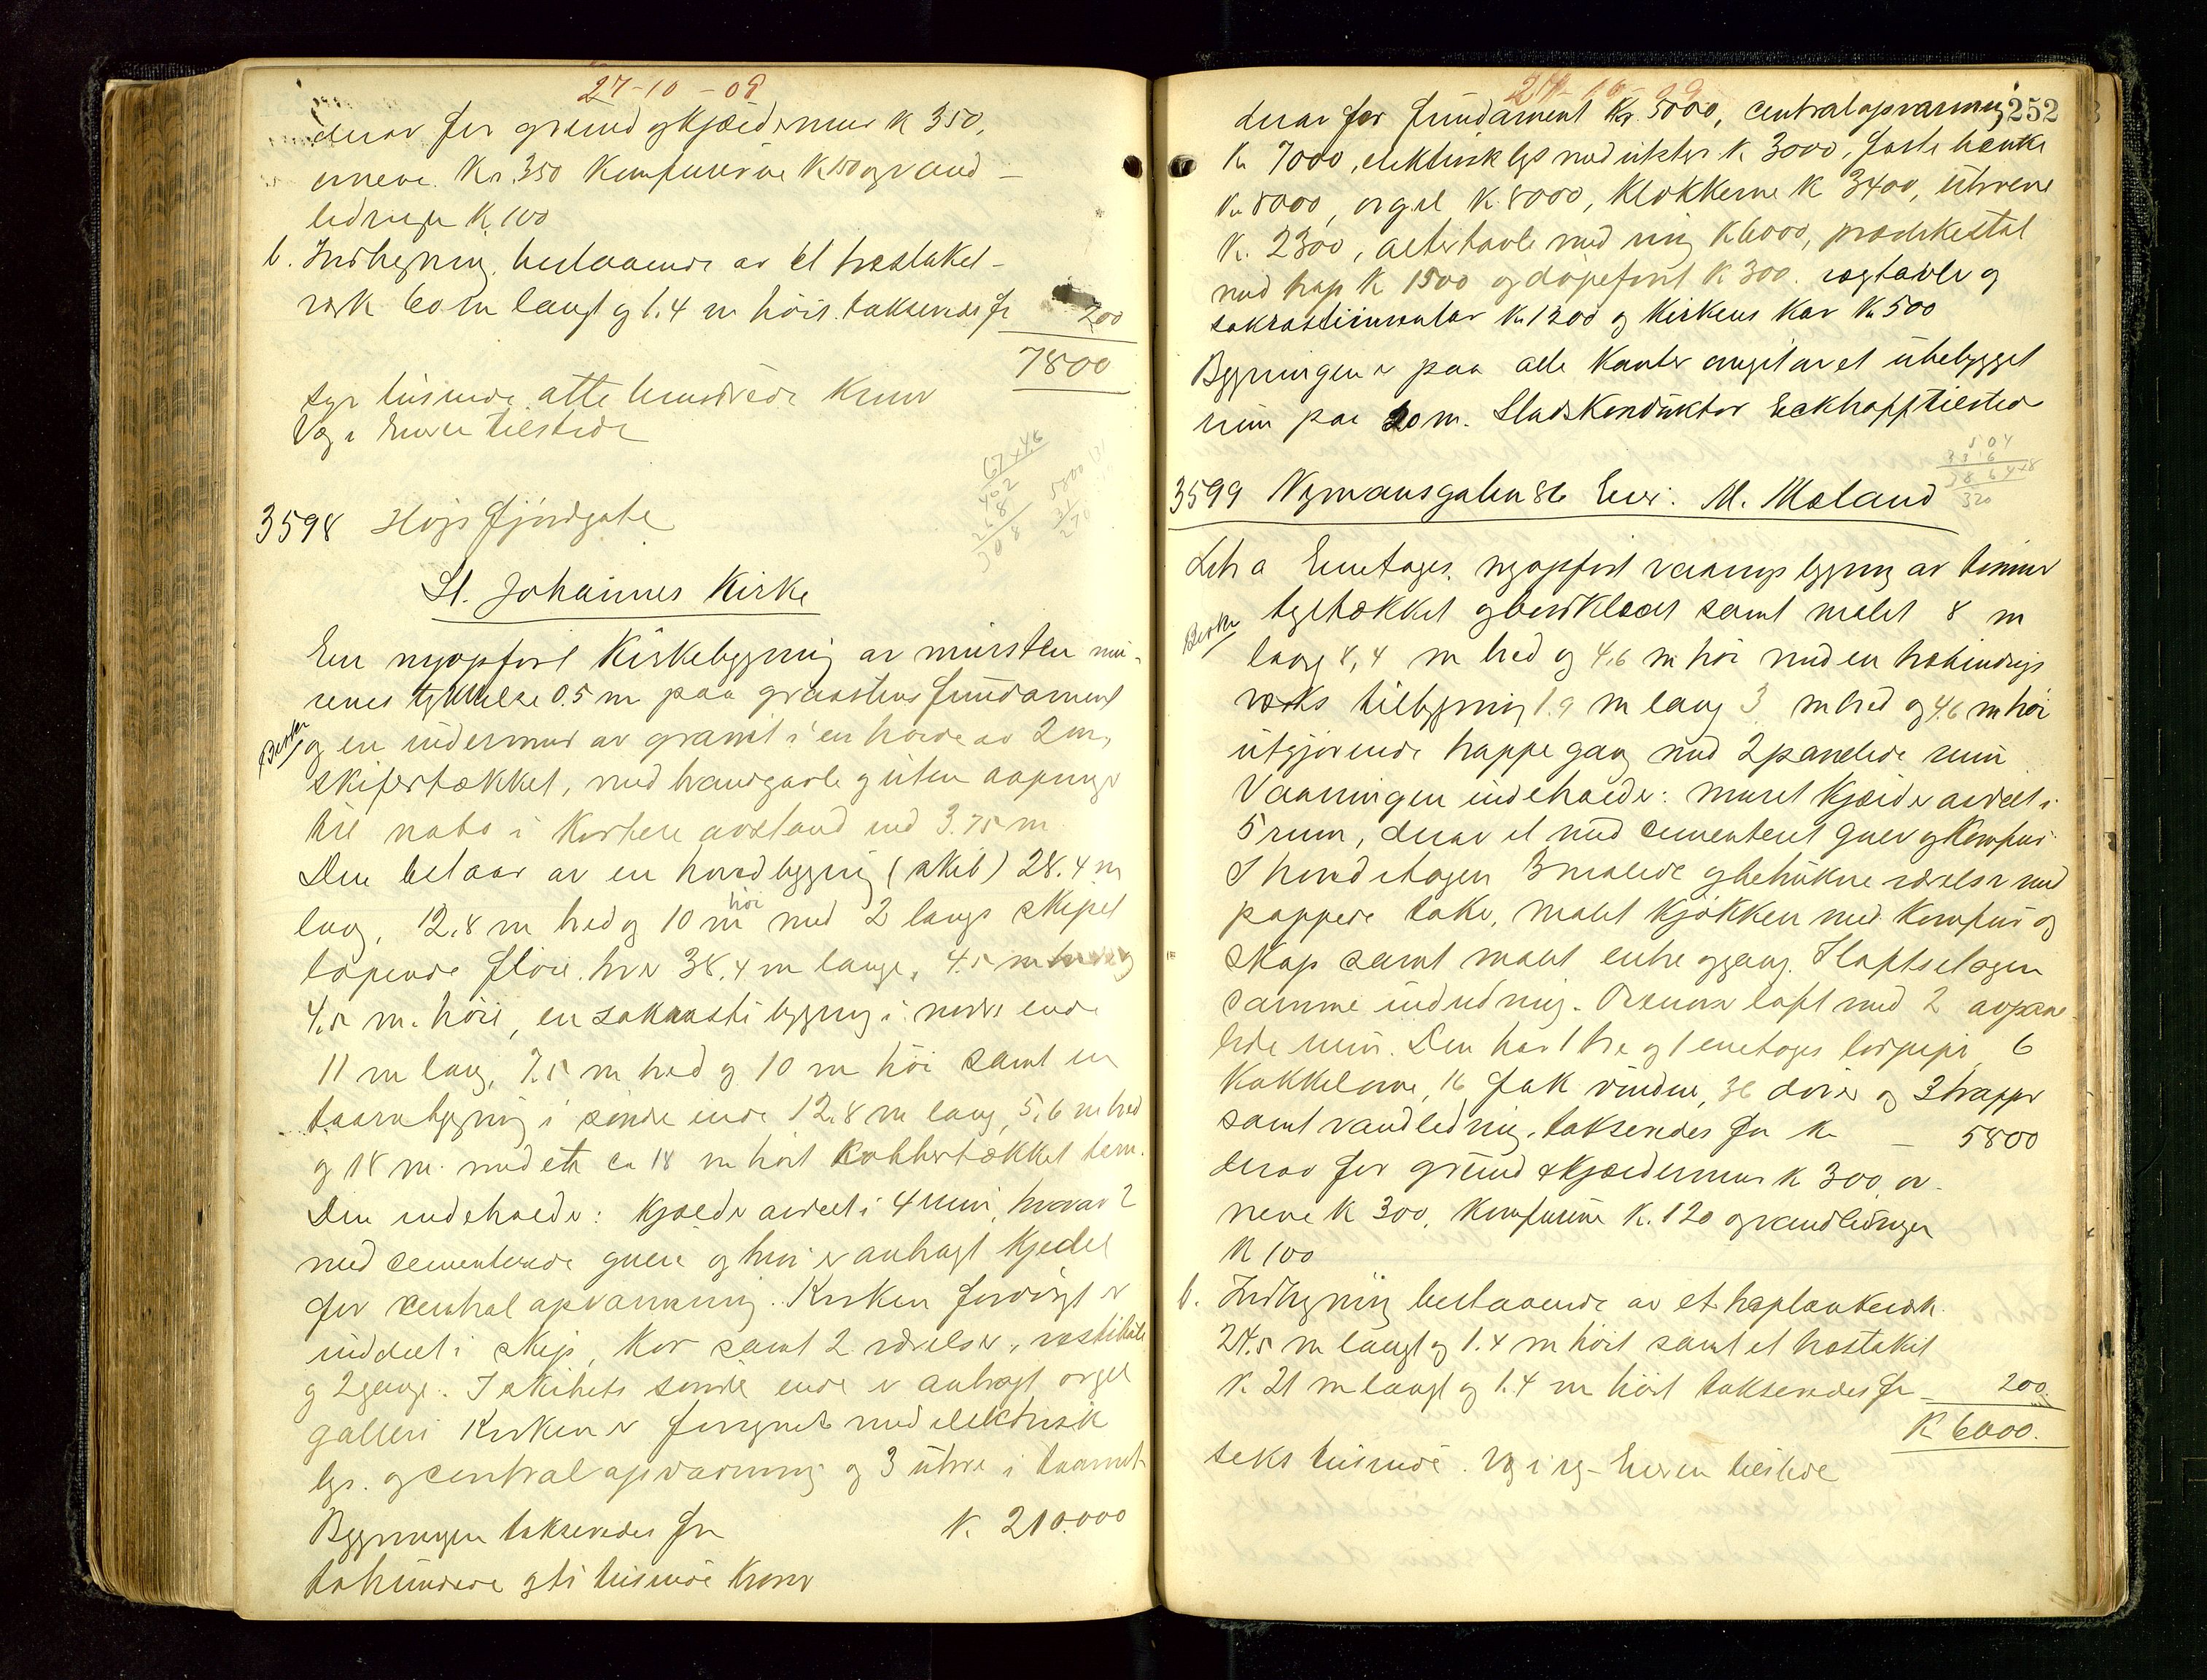 27-10-09
derav for grund og kjeldermur K 350,
ovnene Kr. 350 Komfurerne K 150 og vand-
ledninger K 100
b. Indhegning, bestaaende av et træstaket-
verk 60 m langt og 1.4 m høit takseredes for 200
7800
syv tusinde, atte hundrede Kroner
Veg i Eieren tilstede
67 x 4.6
402
268
308
5800
3598 Høgsfjordgate
St. Johannes Kirke
En nyopført Kirkebygning av mursten mu-
renes tykkelse 0.5 m paa graastens fundament
og en indermur av granit i en høide av 2 m,
skifertækket, med brandgavle og uten aapninger
til nabo i kortere avstand end 3.75 m
Den bestaar av en hovedbygning (skib) 28.4 m
lang, 12.8 m bred og 10 m høi med 2 langs skipet
løpende fløie. hver 38.4 m lange, 4.5 m brede og
4.5 m. høie, en sakristi bygning i nordre ende
11 m lang, 7.5 m bred og 10 m høi samt en
taarnbygning i søndre ende 12.8 m lang, 5.6 m bred
og 18 m. med et ca 18 m høit kobbertækket
Den indeholder: kjelder avdelt i 4 rum, hvorav 2
med cementerede gulve og hvori er anbragt kjedel
for central opvarmning. Kirken forøvrigt er
inddelt i skip, kor samt 2 værelser, vestibule
og 2 gange. I skibets søndre ende er anbragt orgel
galleri Kirken er forsynet med elektrisk
lys. og centralopvarmning og 3 uhre i taarnet
Bygningen takseredes for K. 210.000
tohundrede og ti tusinde kroner
27-10-09
252
derav for fundament Kr. 5000, centralopvarming
K. 7000, elektrisk lys med utstyr K. 3000, faste bænke
K. 8000, orgel K. 8000, klokkerne K 3400, uhrene
K. 2300, altertavle med ring K 6000, prædikestol
med trap K 1500 og døpefont K 300. og
sakristiinventar K. 1200 og Kirkens Kar K. 500
Bygningen er paa alle kanter omgit av et ubebygget
rum paa 20 m. Stadskonduktør Eckhoff tilstede
504
33.6
38.64 x 8
320
3599 Nymansgaten 86 Eier: M. Meland
Litr a Enetages, nyopført vaanings bygning av tømmer
tegltækket og bordklædt samt malet 8 m
lang 8,4 m bred og 4.6 m høi med en træbindings
verks tilbygning 1.9 m lang 3 m bred og 4.6 m høi
utgjørende trappegang med 2 panelede rum
Vaaningen indeholder: muret kjelder avdelt i
5 rum, derav et med cementeret gulv og Komfur
I hovedetagen 3 malede og betrukne værelser med
pappede take, malet kjøkken med Komfur og
skap samt malt entre og gang. I loftsetagen
samme inddeling. Øverste loft med 2 avpane-
lede rum. Den har 1 tre og 1 enetages lodpipe, 6
kakkelovne, 16 fak vinduer, 36 døre og 3 trapper
samt vandledning, takseredes for K. – 5800
derav for grund & kjeldermur K 300, ov-
nene K 300, komfurene K. 120 og vandledninger
K 100
b. Indhegning bestaaende av et træplankeverk
24.5 m langt og 1.4 m høit samt et træstaket
v. 21 m langt og 1.4 m høit takseredes for – 200.
K 6000.
seks tusinde. Eieren tilstede